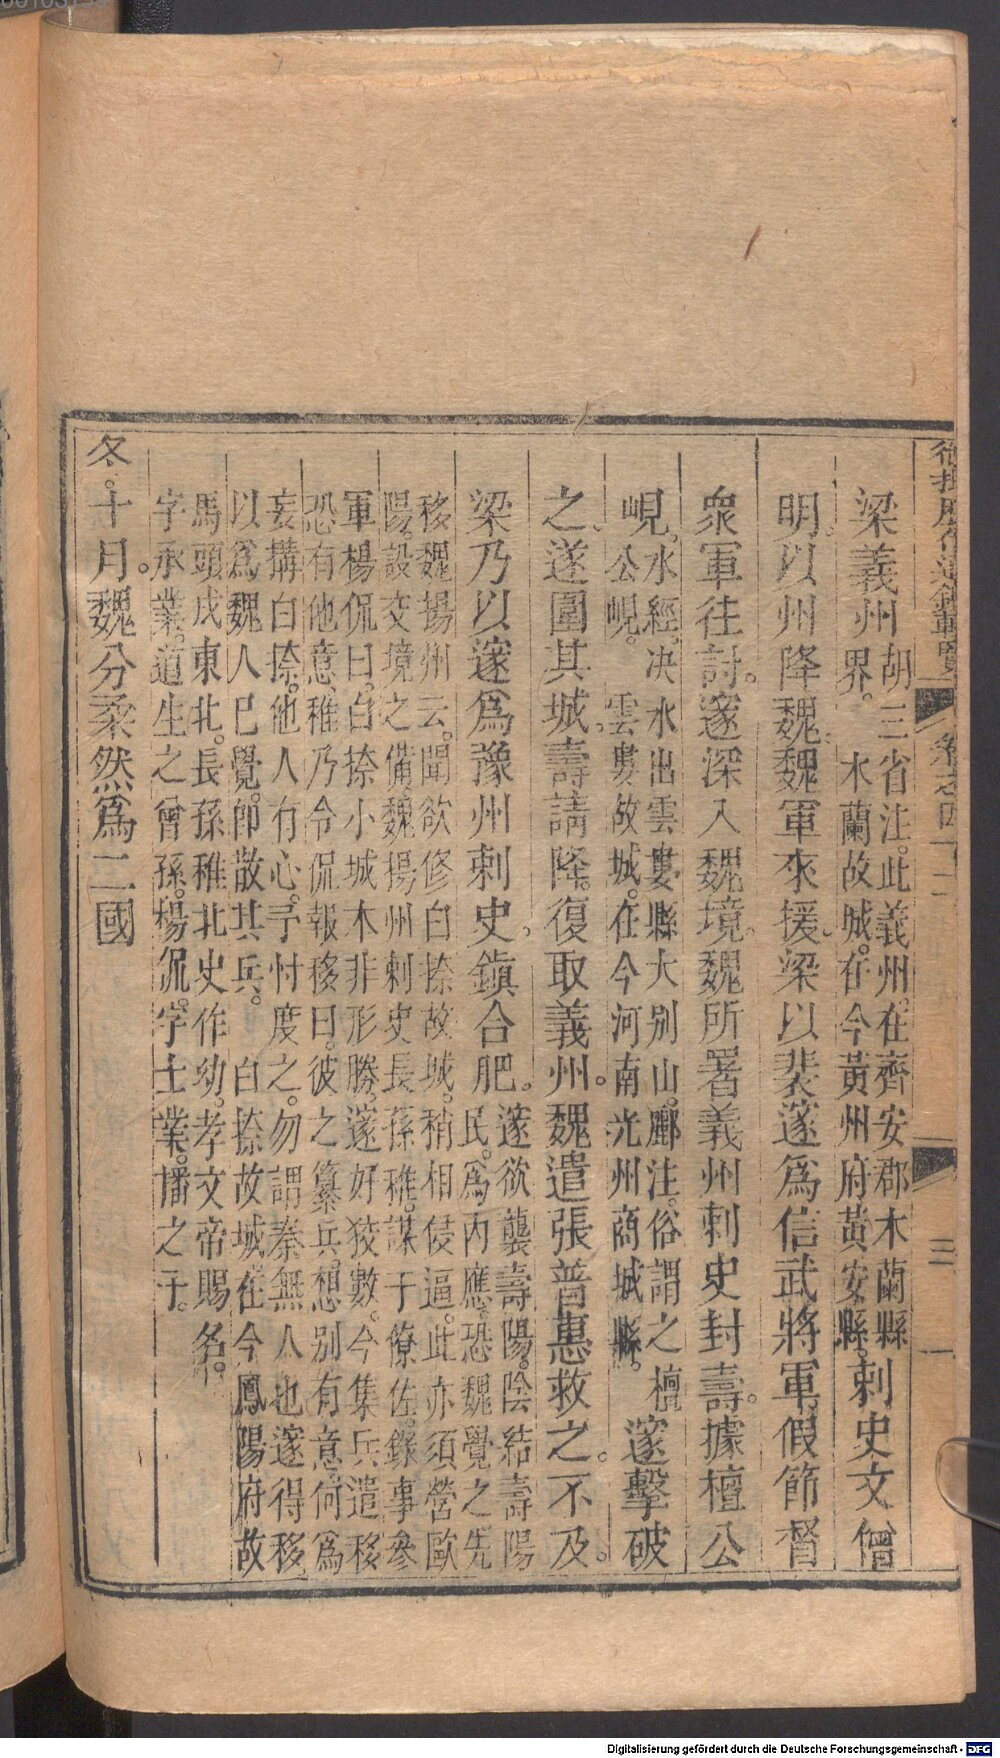 梁義州胡三省注。此義州。在齊安郡木蘭縣
界。木蘭故城。在今黃州府黃安縣。刺史文僧
明。以州降魏。魏軍來援。梁以裴邃爲信武將軍假節督
衆軍往討。邃深入魏境。魏所署義州刺史封壽。據檀公
峴。水經。決水出雲婁縣大別山。酈注。俗謂之檀
公峴。雲婁故城。在今河南光州商城縣。邃擊破
之。遂圍其城。壽請降。復取義州。魏遣張普惠救之。不及。
梁乃以邃爲豫州刺史。鎮合肥。邃欲襲壽陽。陰結壽陽
民。爲內應。恐魏覺之。先
移魏揚州云。聞欲修白捺故城。稍相侵逼。此亦須營歐
陽。設交境之備。魏揚州刺史長孫稚。謀于僚佐。錄事參
軍楊侃曰。白捺小城。本非形勝。邃好狡數。今集兵遣移
恐有他意。稚乃令侃報移曰。彼之纂兵。想別有意。何爲
妄搆白捺。他人有心。予忖度之。勿謂秦無人也。邃得移
以爲魏人已覺。卽散其兵。白捺故城。在今鳳陽府故
馬頭戍東北。長孫稚。北史作幼。孝文帝賜名。
字承業。道生之曾孫。楊侃。字士業。播之子。
冬。十月。魏分柔然爲二國
卷之四
三
Digitalisierung gefördert durch die Deutsche Forschungsgemeinschaft - DFG